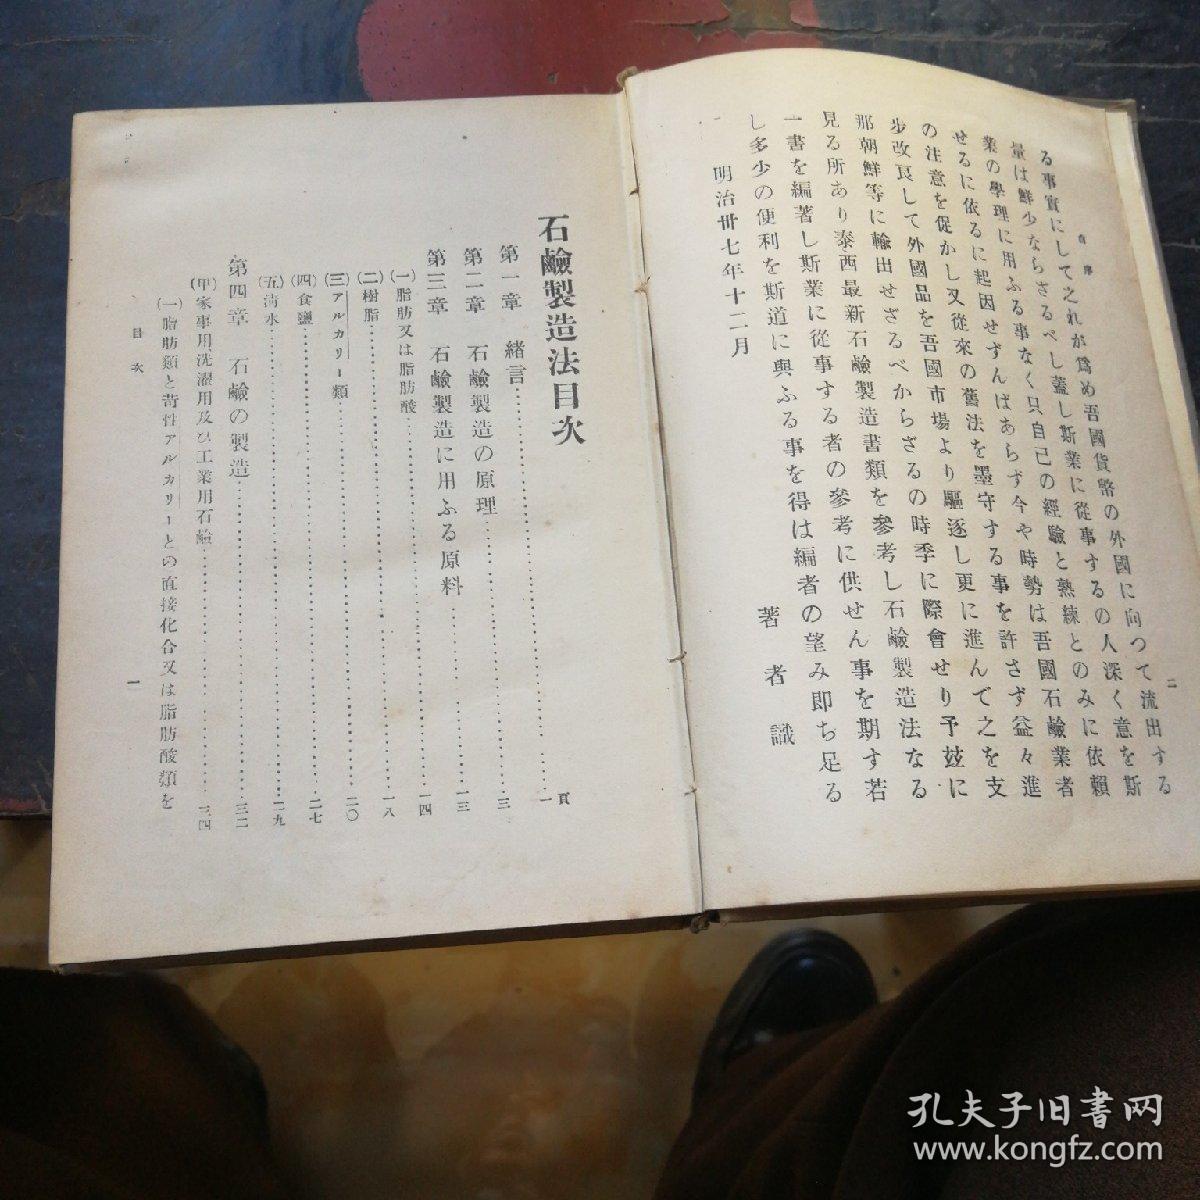 自序
二
る事實にして之れが爲め吾國貨幣の外國に向つて流出する
量は鮮少ならざるべし蓋し斯業に從事するの人深く意を斯
業の學理に用ふる事なく只自己の經驗と熟練とのみに依賴
せるに依るに起因せずんばあらず今や時勢は吾國石鹼業者
の注意を促かし又從來の舊法を墨守する事を許さず益々進
步改良して外國品を吾國市場より驅逐し更に進んで之を支
那朝鮮等に輸出せざるべからざるの時季に際會せり予玆に
見る所あり泰西最新石鹼製造書類を參考し石鹼製造法なる
一書を編著し斯業に從事する者の參考に供せん事を期す若
し多少の便利を斯道に與ふる事を得は編者の望み即ち足る
明治卅七年十二月
著者識
石鹼製造法目次
頁
第一章 緒言 一
第二章 石鹼製造の原理 三
第三章 石鹼製造に用ふる原料 一三
(一)脂肪又は脂肪酸 一四
(二)樹脂 一八
(三)アルカリー類 二〇
(四)食鹽 二七
(五)淸水 二九
第四章 石鹼の製造 三二
(甲)家事用洗濯用及ひ工業用石鹼 三四
(一)脂肪類と苛性アルカリーとの直接化合又は脂肪酸類を
目次
一
孔夫子旧书网
www.kongfz.com